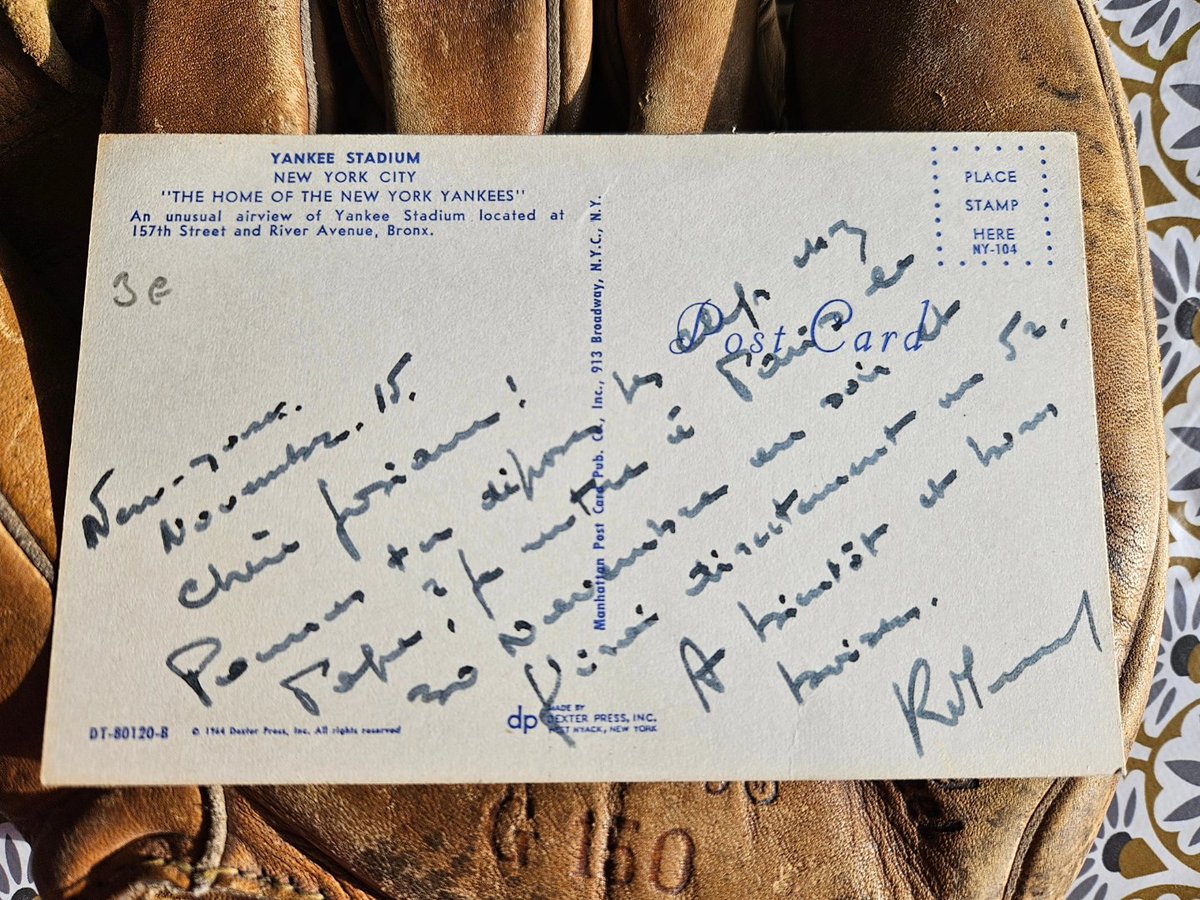 YANKEE STADIUM
NEW YORK CITY
"THE HOME OF THE NEW YORK YANKEES"
An unusual airview of Yankee Stadium located at
157th Street and River Avenue, Bronx.
3 €
PLACE
STAMP
HERE
NY-104
Post Card
Manhattan Post Card Pub. Co., Inc., 913 Broadway, N.Y.C., N.Y.
New-York.
Novembre. 15.
Chère Josiane!
Pouvez tu déposer les chez
Pape? Je rentre à Paris le
20 Novembre au soir et
directement au 52.
A bientôt et bons
baisers.
DT-80120-B
© 1964 Dexter Press, Inc. All rights reserved
dp
MADE BY
DEXTER PRESS, INC.
WEST NYACK, NEW YORK
G 150